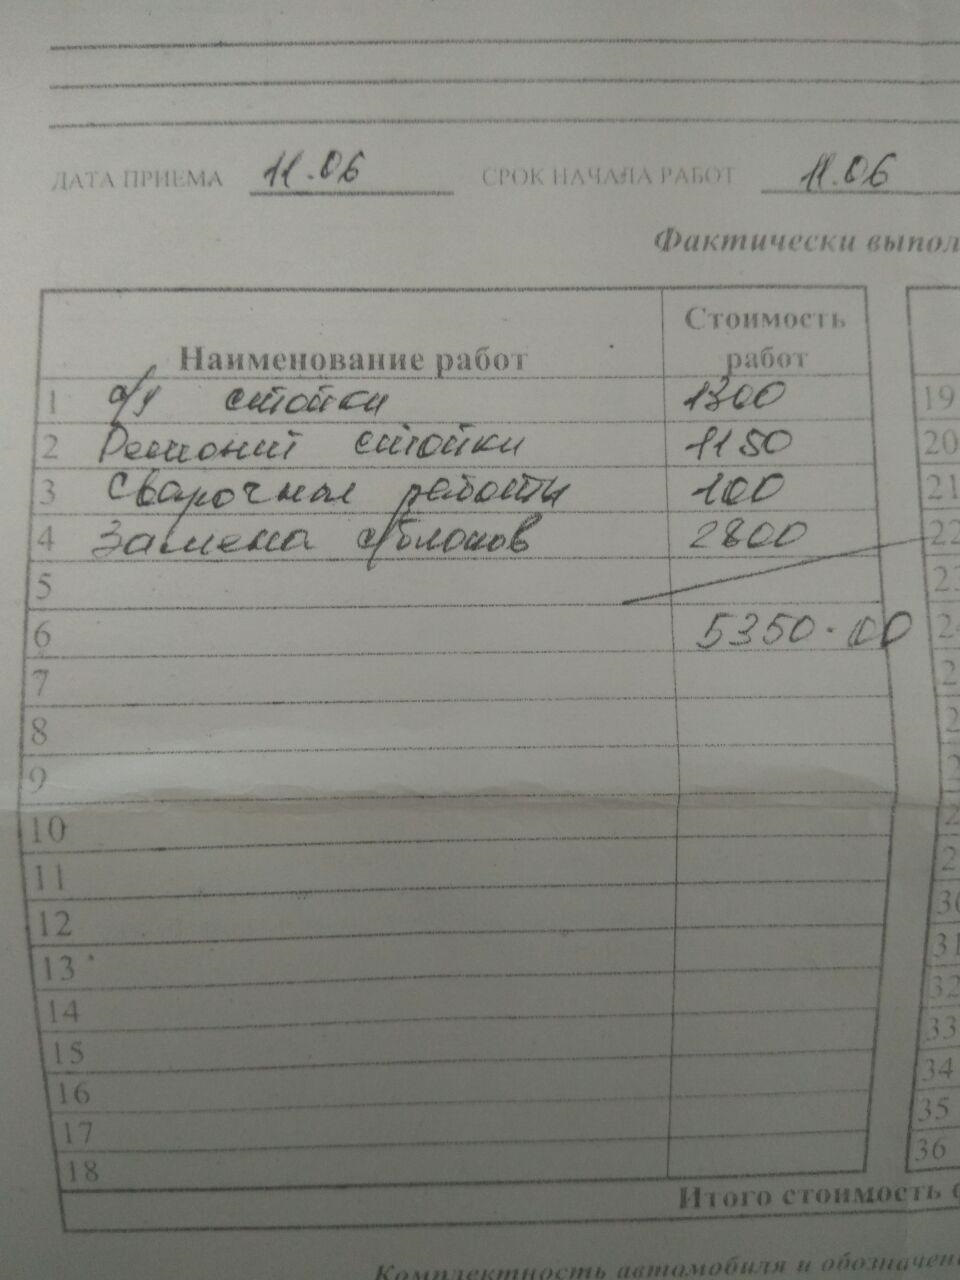 ДАТА ПРИЕМА 11.06 СРОК НАЧАЛА РАБОТ 11.06
Фактически выпол
Наименование работ Стоимость работ
1 с/у стойки 1300 19
2 Ремонт стойки 1150 20
3 Сварочная работы 100 21
4 Замена с/блоков 2800 22
5 23
6 5350.00 24
7 2
8 2
9 2
10 2
11 2
12 30
13 31
14 32
15 33
16 34
17 35
18 36
Итого стоимость
Комплектность автомобиля и обозначен